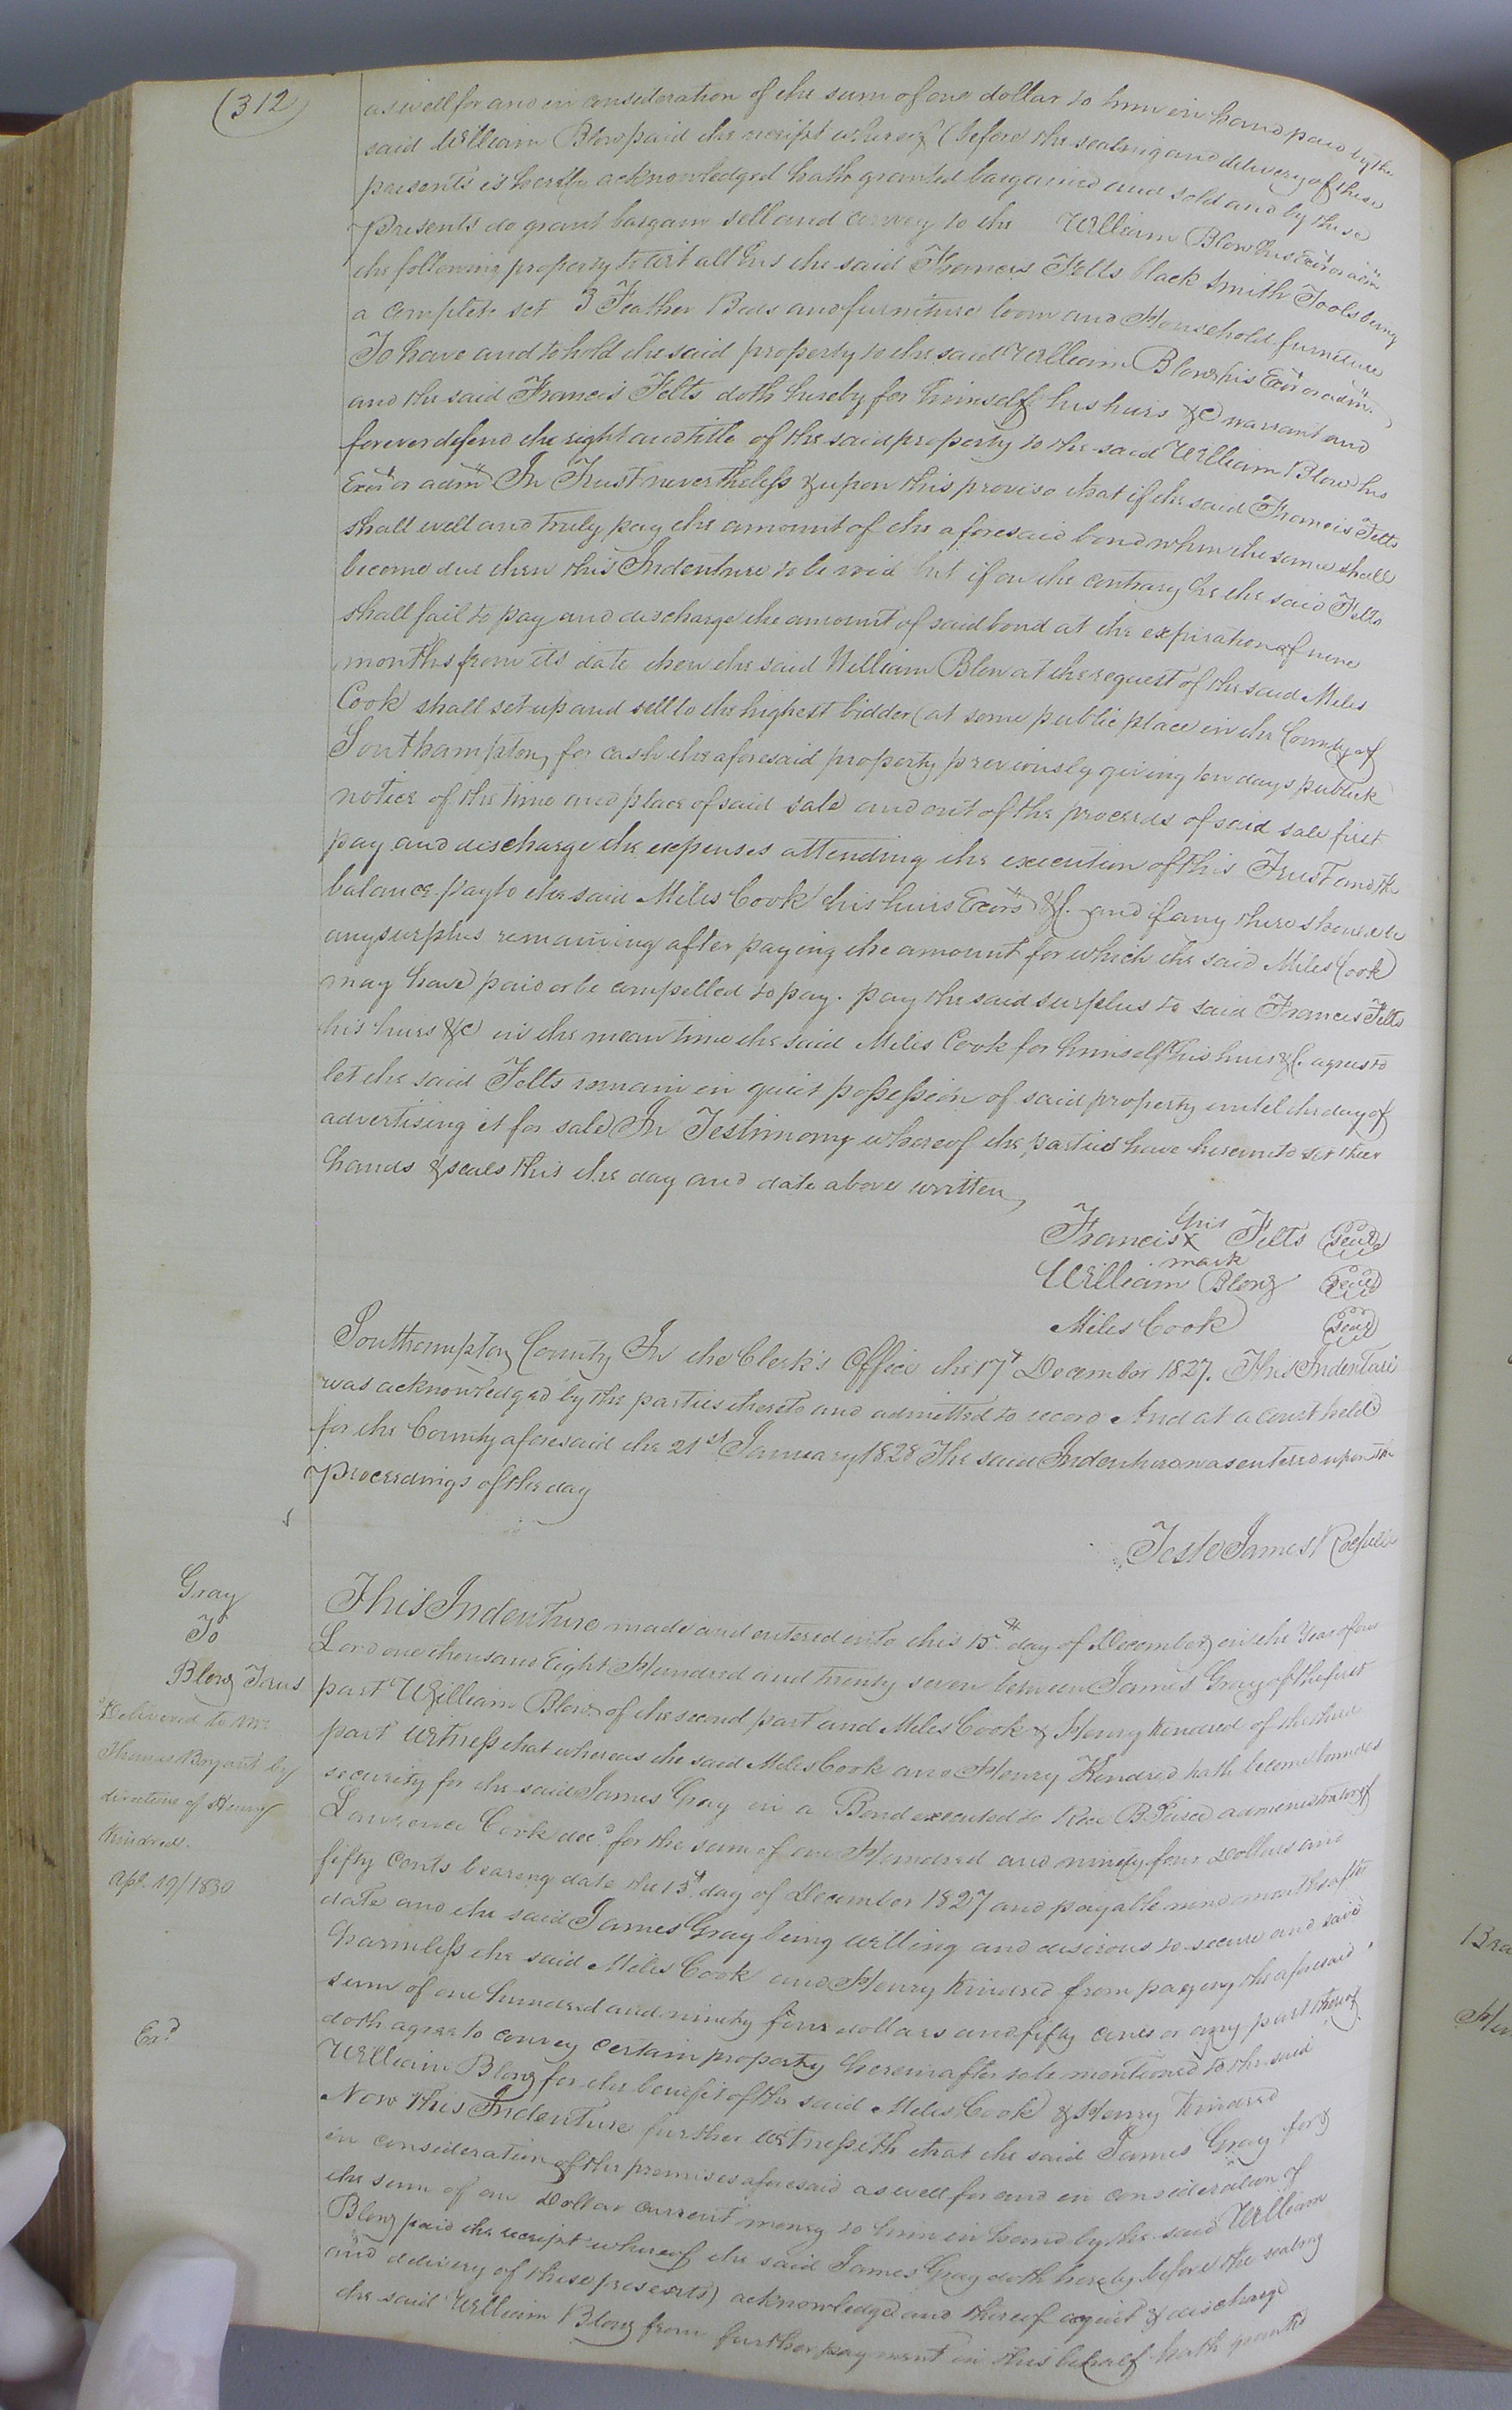 (312)
as well for and in consideration of the sum of one dollar to him in hand paid by the
said William Blow paid the receipt whereof (before the sealing and delivery of these
presents is hereby acknowledged hath granted bargained and sold and by these
Presents do grant bargain sell and convey to the William Blow his Exōr or adm̄
the following property to wit all his the said Francis Felts black Smith Tools being
a complete set 3 Feather Beds and furniture loom and Household furniture
To have and to hold the said property to the said William Blow his Exōr or adm̄.
and the said Francis Felts doth hereby for himself his heirs &c warrant and
forever defend the right and title of the said property to the said William Blow his
Exōr or adm̄ In Trust nevertheless & upon this proviso that if the said Francis Felts
shall well and truly pay the amount of the aforesaid bond when the same shall
become due then this Indenture to be void but if on the contrary he the said Felts
shall fail to pay and discharge the amount of said bond at the expiration of nine
months from its date then the said William Blow at the request of the said Miles
Cook shall set up and sell to the highest bidder (at some public place in the County of
Southampton, for cash the aforesaid property previously giving ten days publick
notice of the time and place of said sale and out of the proceeds of said sale first
pay and discharge the expenses attending the execution of this Trust and the
balance pay to the said Miles Cook his heirs Exōrs &c. and if any there should be
any surplus remaining after paying the amount for which the said Miles Cook
may have paid or be compelled to pay. pay the said surplus to said Francis Felts
his heirs &c in the mean time the said Miles Cook for himself his heirs &c. agrees to
let the said Felts remain in quiet possession of said property until the day of
advertising it for sale In Testimony whereof the parties have hereunto set their
hands & seals this the day and date above written,
his
Francis x Felts (seal)
mark
William Blow (seal)
Miles Cook (seal)
Southampton County In the Clerk's Office the 17th December 1827. This Indenture
was acknowledged by the parties thereto and admitted to record And at a Court held
for the County aforesaid the 21st January 1828 The said Indenture was entered upon the
Proceedings of the day
Teste James Rochelle
Gray
To
Blow Trus
Delivered to Mr
Thomas Bryant by
directions of Henry
Kindred.
Apl. 19/1830
Exd
This Indenture made and entered into this 15th day of December, in the Year of our
Lord one thousand Eight Hundred and twenty seven between James Gray of the first
part William Blow of the second part and Miles Cook & Henry Kindred of the third
part Witness that whereas the said Miles Cook and Henry Kindred hath become themselves
security for the said James Gray in a Bond executed to Rice B Peirce administrator of
Lawrence Cook decd for the sum of one Hundred and ninety four Dollars and
fifty Cents bearing date the 15th day of December 1827 and payable nine months after
date and the said James Gray being willing and desirous to secure and save
harmless the said Miles Cook and Henry Kindred from paying the aforesaid
sum of one hundred and ninety four dollars and fifty cents or any part thereof
doth agree to convey certain property hereinafter to be mentioned to the said
William Blow for the benefit of the said Miles Cook & Henry Kindred
Now this Indenture further witnesseth that the said James Gray for &
in consideration of the premises aforesaid as well for and in consideration of
the sum of one Dollar current money to him in hand by the said William
Blow paid the receipt whereof the said James Gray doth hereby before the sealing
and delivery of these presents) acknowledge and thereof acquit & discharge
the said William Blow from further payment in this behalf hath granted
Bra
Hen